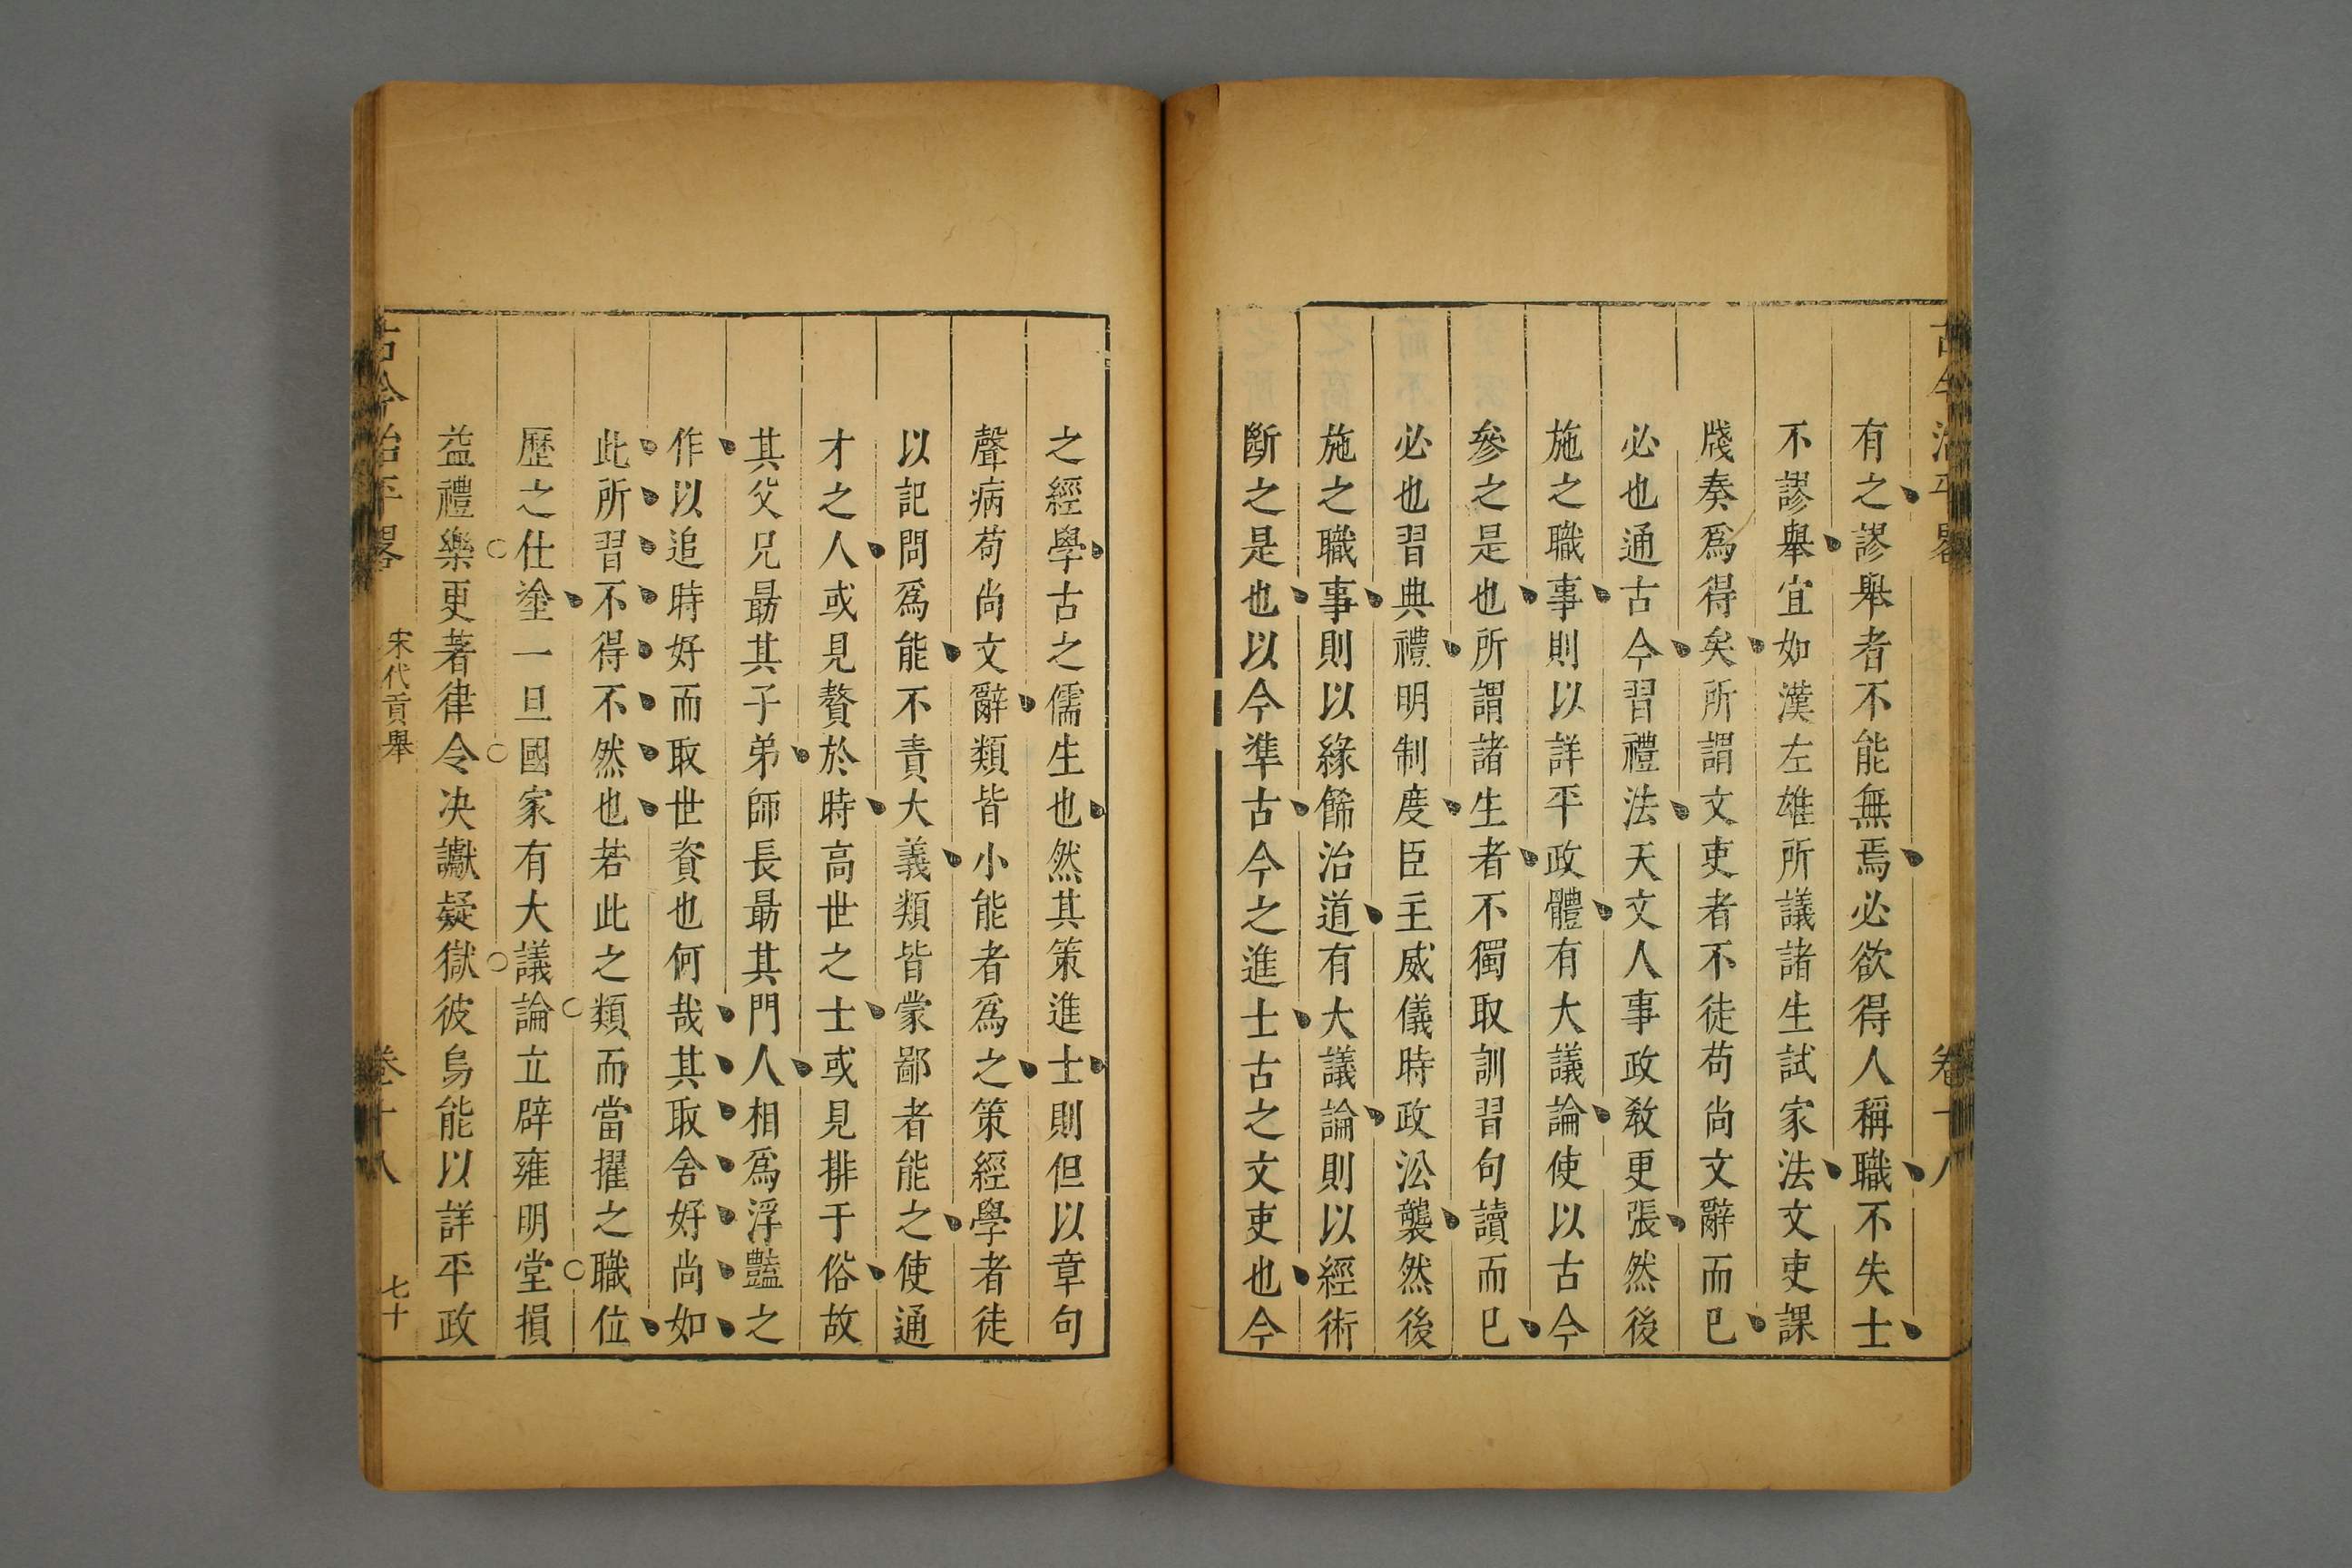 古今治平畧 卷十八
有之謬舉者不能無焉必欲得人稱職不失士
不謬舉宜如漢左雄所議諸生試家法文吏課
牋奏爲得矣所謂文吏者不徒苟尚文辭而已
必也通古今習禮法天文人事政教更張然後
施之職事則以詳平政體有大議論使以古今
參之是也所謂諸生者不獨取訓習句讀而已
必也習典禮明制度臣主威儀時政沿襲然後
施之職事則以緣飾治道有大議論則以經術
斷之是也以今準古今之進士古之文吏也今
之經學古之儒生也然其策進士則但以章句
聲病苟尚文辭類皆小能者爲之策經學者徒
以記問爲能不責大義類皆蒙鄙者能之使通
才之人或見贅於時高世之士或見排于俗故
其父兄勗其子弟師長勗其門人相爲浮豔之
作以追時好而取世資也何哉其取舍好尚如
此所習不得不然也若此之類而當擢之職位
歷之仕塗一旦國家有大議論立辟雍明堂損
益禮樂更著律令决讞疑獄彼烏能以詳平政
古今治平畧 宋代貢舉 卷十八 七十